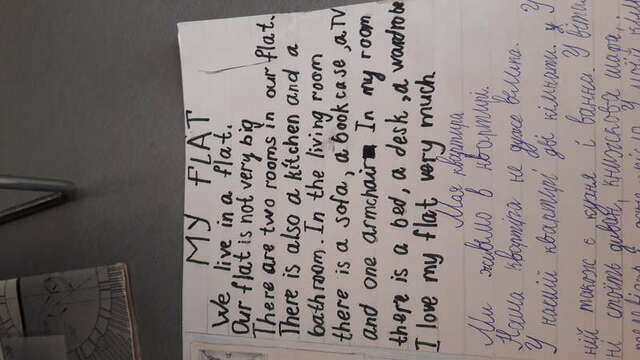 MY FLAT
We live in a flat.
Our flat is not very big
There are two rooms in our flat.
There is also a kitchen and a
bathroom. In the living room
there is a sofa, a bookcase, a TV
and one armchair In my room
there is a bed, a desk, a wardrobe
I love my flat very much
Моя квартира
Ми живемо в квартирі.
Наша квартира не дуже велика.
У нашій квартирі дві кімнати. у
ній також є кухня і ванна. У віта
ні стоїть диван, книжкова шафа,